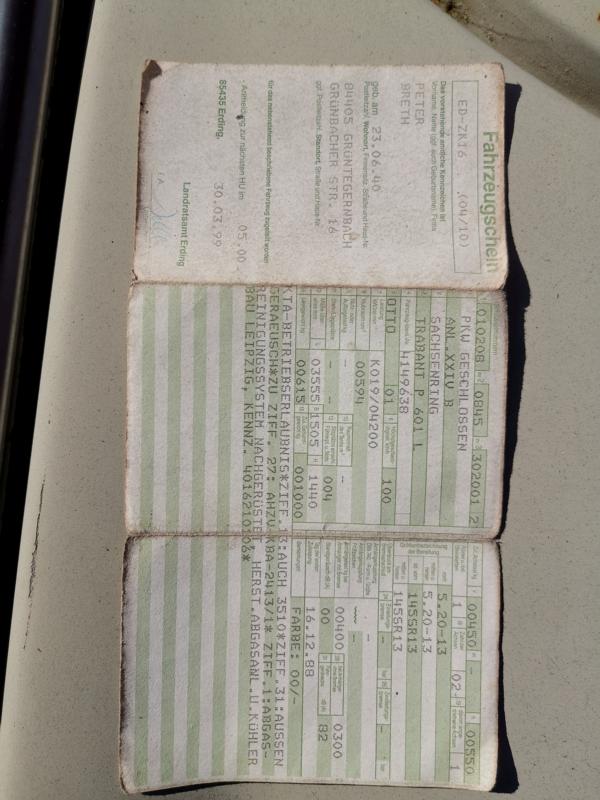 Fahrzeugschein
ED-ZK16 (04/10)
Das vorstehende amtliche Kennzeichen ist
Vorname, Name (ggf. auch Geburtsname), Firma
PETER
BRETH
geb. am 23.06.40
Postleitzahl, Wohnort, Firmensitz, Straße und Haus-Nr.
84405 GRÜNTEGERNBACH
GRÜNBACHER STR. 16
ggf. Postleitzahl, Standort, Straße und Haus-Nr.
für das nebenstehend beschriebene Fahrzeug zugeteilt worden
Anmeldung zur nächsten HU im 05.00
85435 Erding, 30.03.99
Landratsamt Erding
I.A.
010208 0845 302001 2
PKW GESCHLOSSEN
ANL.XXIV B
SACHSENRING
TRABANT P 601 L
4149638
OTTO 01 100
K019/04200
00594
- - -
- - 004
03555 1505 1440
00615 001000
00450 - 00550
1 02- 1
5.20-13
5.20-13
145SR13
145SR13
- -
-
-
00400 0300
00 82
16.12.88
Bemerkungen: FARBE: 00/-
KTA-BETRIEBSERLAUBNIS*ZIFF.13:AUCH 3510*ZIFF.31:AUSSEN
GERAEUSCH*ZU ZIFF. 27: AHZV-KBA-2413/1* ZIFF.1:ABGAS-
REINIGUNGSSYSTEM NACHGERÜSTET, HERST.ABGASANL.U.KÖHLER
BAU LEIPZIG, KENNZ. 4016210106*